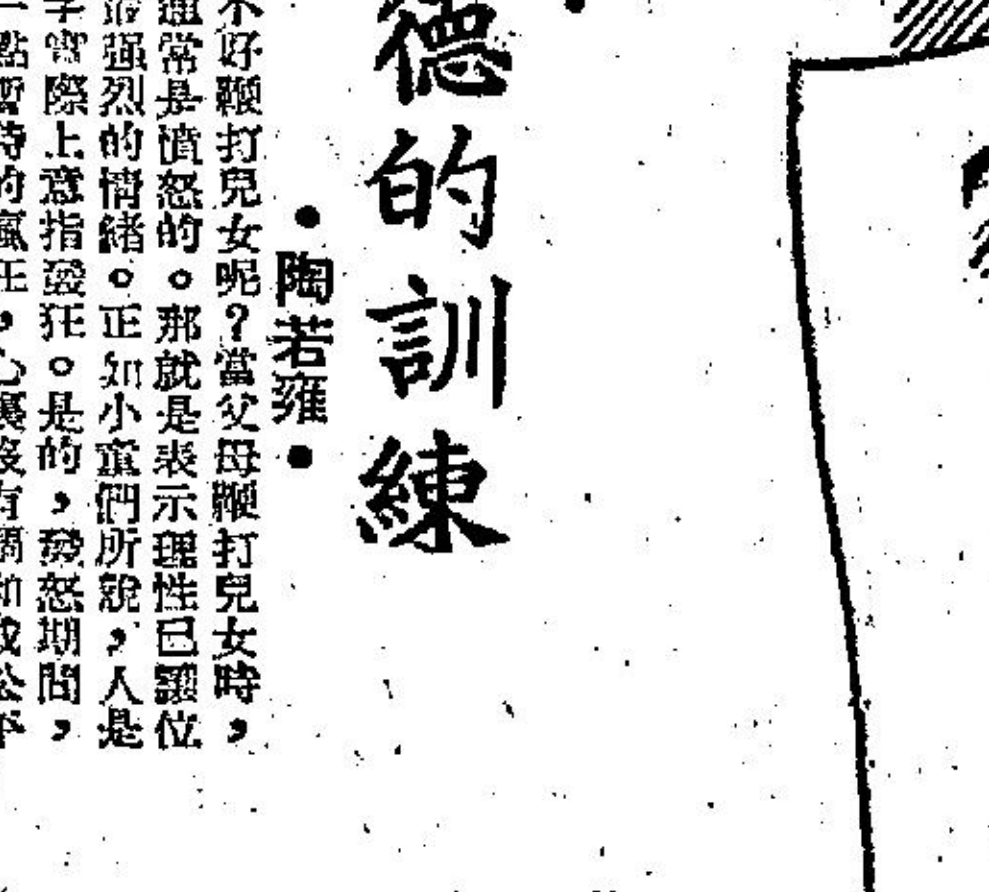 德的訓練
•陶若雍•
不好鞭打兒女呢?當父母鞭打兒女時,
通常是憤怒的。那就是表示理性已讓位
最強烈的情緒。正如小童們所說,人是
字實際上意指發狂。是的,發怒期間,
一點暫時的瘋狂,心裏沒有調和或公平